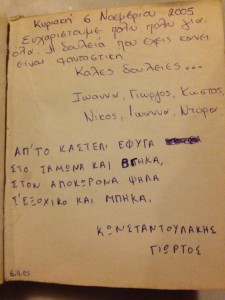 Κυριακή 6 Νοεμβρίου 2005
Ευχαριστουμε πολυ πολυ για
ολα. Η δουλειά που εχεις κανει
ειναι φανταστικη
Καλες δουλειες...
Ιωαννα, Γιωργος, Κωστας,
Νικος, Ιωαννα, Ντορα
ΑΠ'ΤΟ ΚΑΣΤΕΛΙ ΕΦΥΓΑ
ΣΤΟ ΣΑΜΩΝΑ ΚΑΙ ΒΓΗΚΑ,
ΣΤΟΝ ΑΠΟΚΟΡΩΝΑ ΨΗΛΑ
Σ'ΕΞΟΧΙΚΟ ΚΑΙ ΜΠΗΚΑ,
ΚΩΝΣΤΑΝΤΟΥΛΑΚΗΣ
ΓΙΩΡΓΟΣ